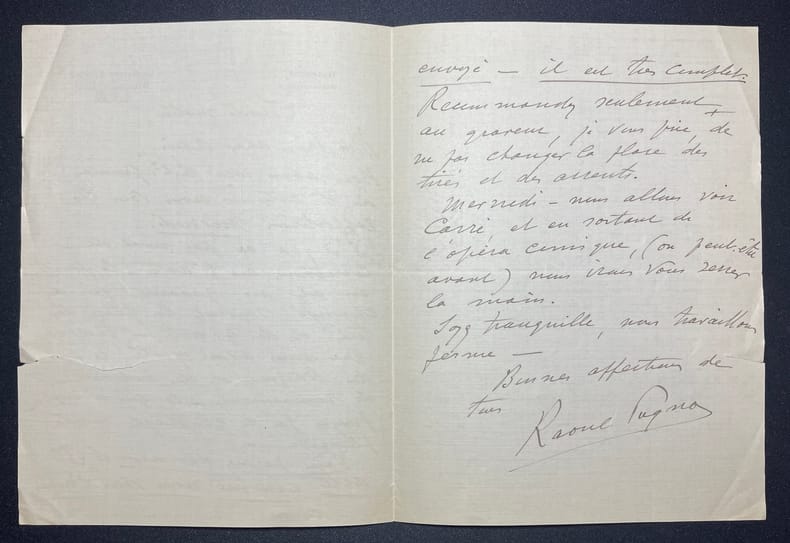 envoyé — il est très complet.
Recommandez seulement
au graveur, je vous prie, de
ne pas changer la place des
tirés et des accents.
Mercredi — nous allons voir
Carré, et en sortant de
l'opéra comique, (ou peut-être
avant) nous irons vous serrer
la main.
Soyez tranquille, nous travaillons
ferme —
Bonnes affections de
tous
Raoul Pugno